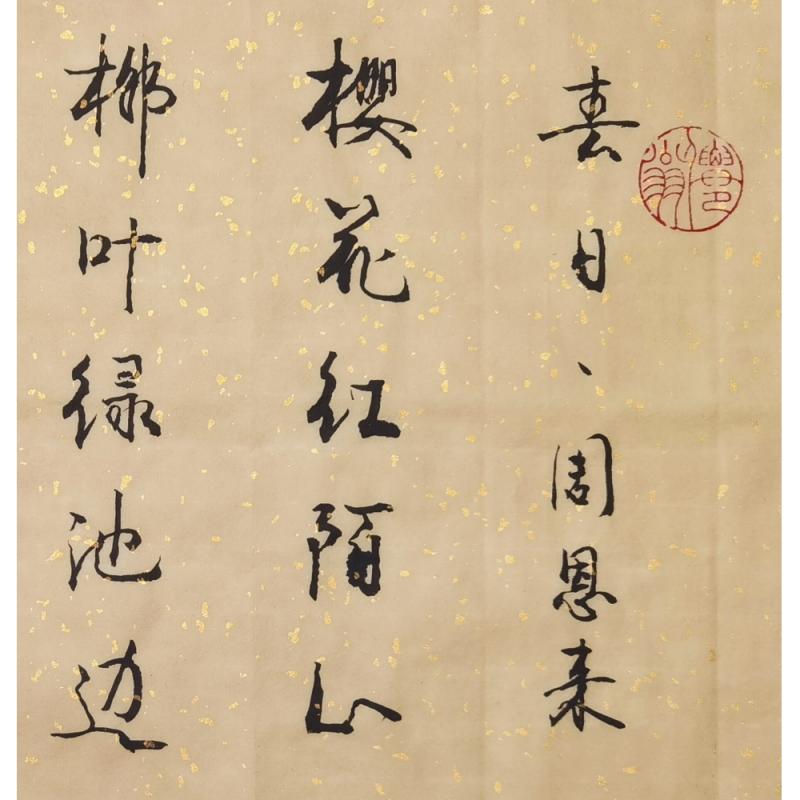 春日、周恩来
樱花红陌上
柳叶绿池边